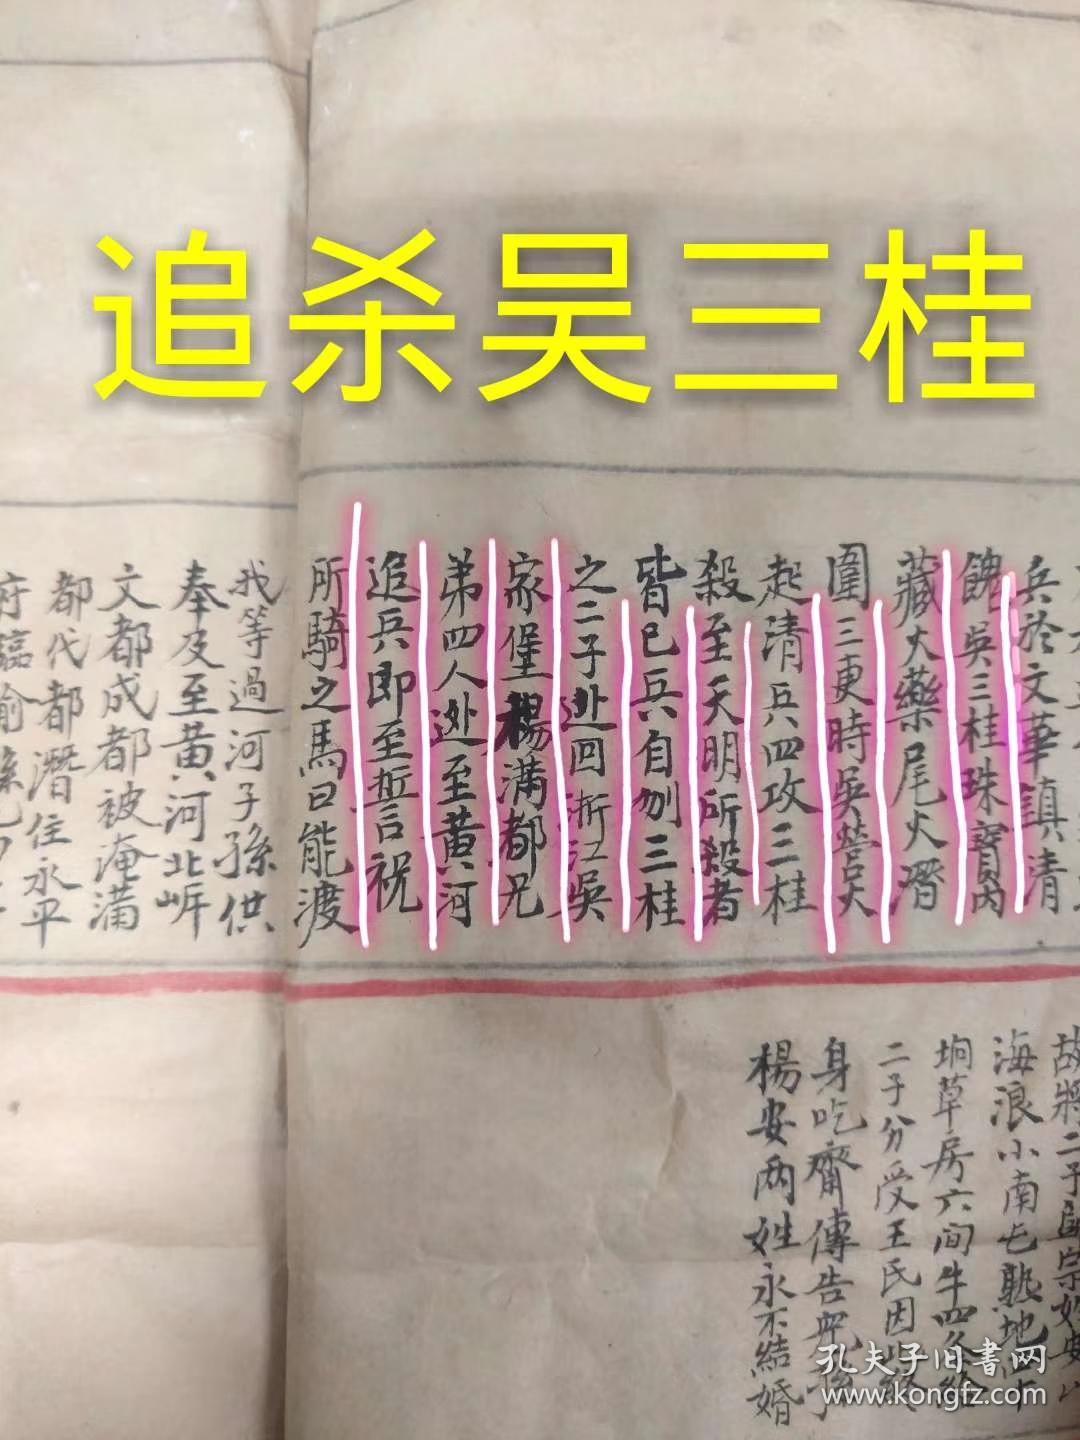 追杀吴三桂
兵於文華鎮清
餽吳三桂珠寶內
藏火藥尾火潛
圍三更時吳營火
起清兵四攻三桂
殺至天明所殺者
皆已兵自刎三桂
之二子逃回浙江吳
家堡楊滿都兄
弟四人逃至黃河
追兵即至誓言祝
所騎之馬曰能渡
我等過河子孫供
奉及至黃河北岸
文都成都被淹滿
都代都潛住永平
府臨榆縣
故將二子歸宗
海浪小南屯熟地四
垧草房六间牛四条给
二子分受王氏因此終
身吃齋傳告兒孫
楊安两姓永不結婚
孔夫子旧書网
www.kongfz.com